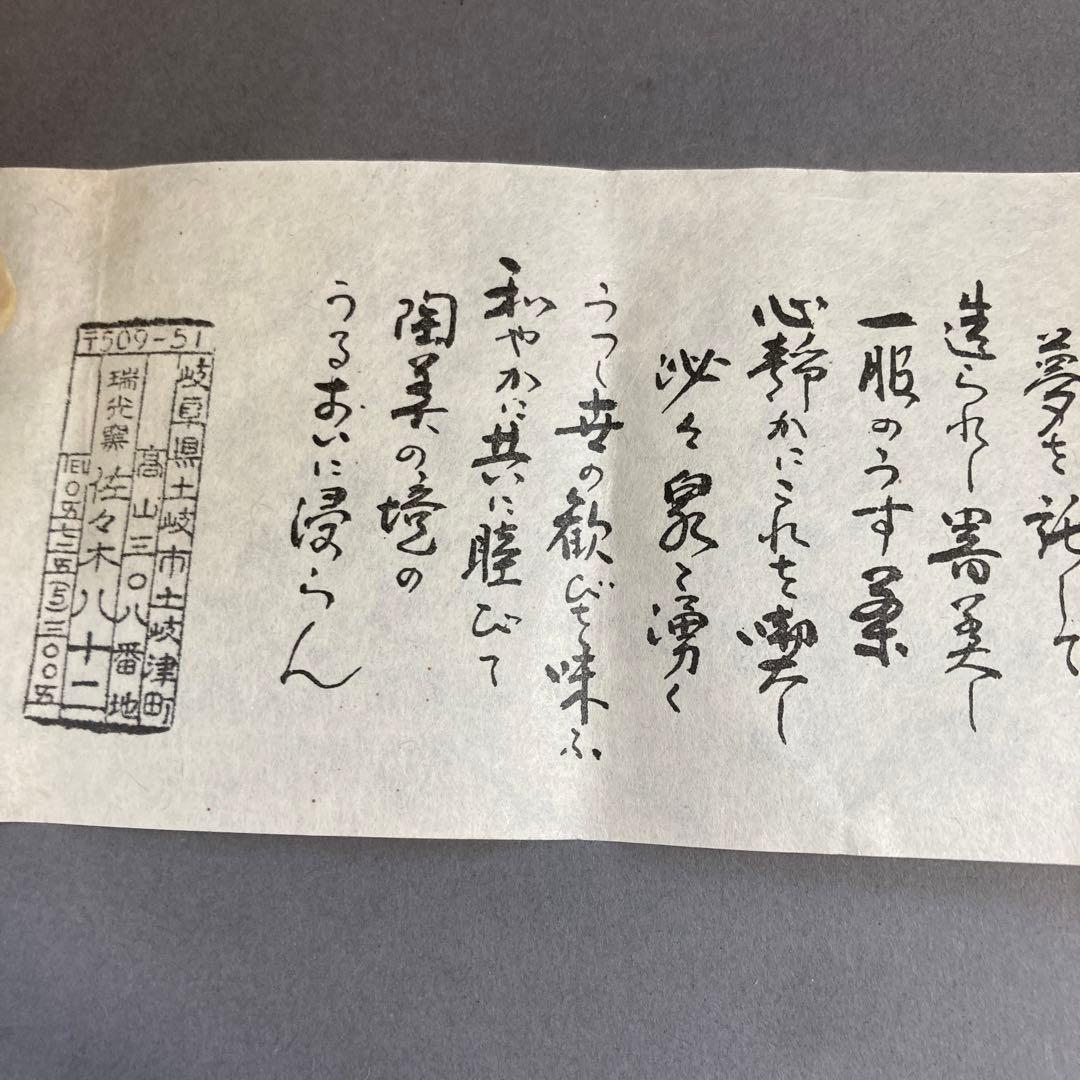 夢を託して
造られし器美し
一服のうす茶
心静かにこれを喫し
泌々泉く湧く
うつし世の歓びを味ふ
和やかに共に睦びて
陶美の境の
うるおいに浸らん
〒509-51
岐阜県土岐市土岐津町
高山三〇八番地
瑞光窯 佐々木八十二
TEL〇五七二五五三〇〇五